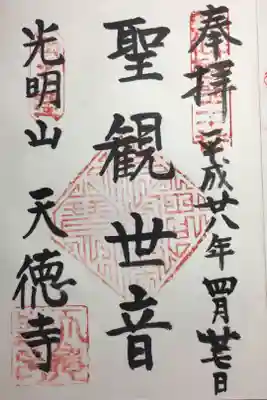 奉拝 平成廿八年四月廿七日
聖観世音
光明山 天徳寺